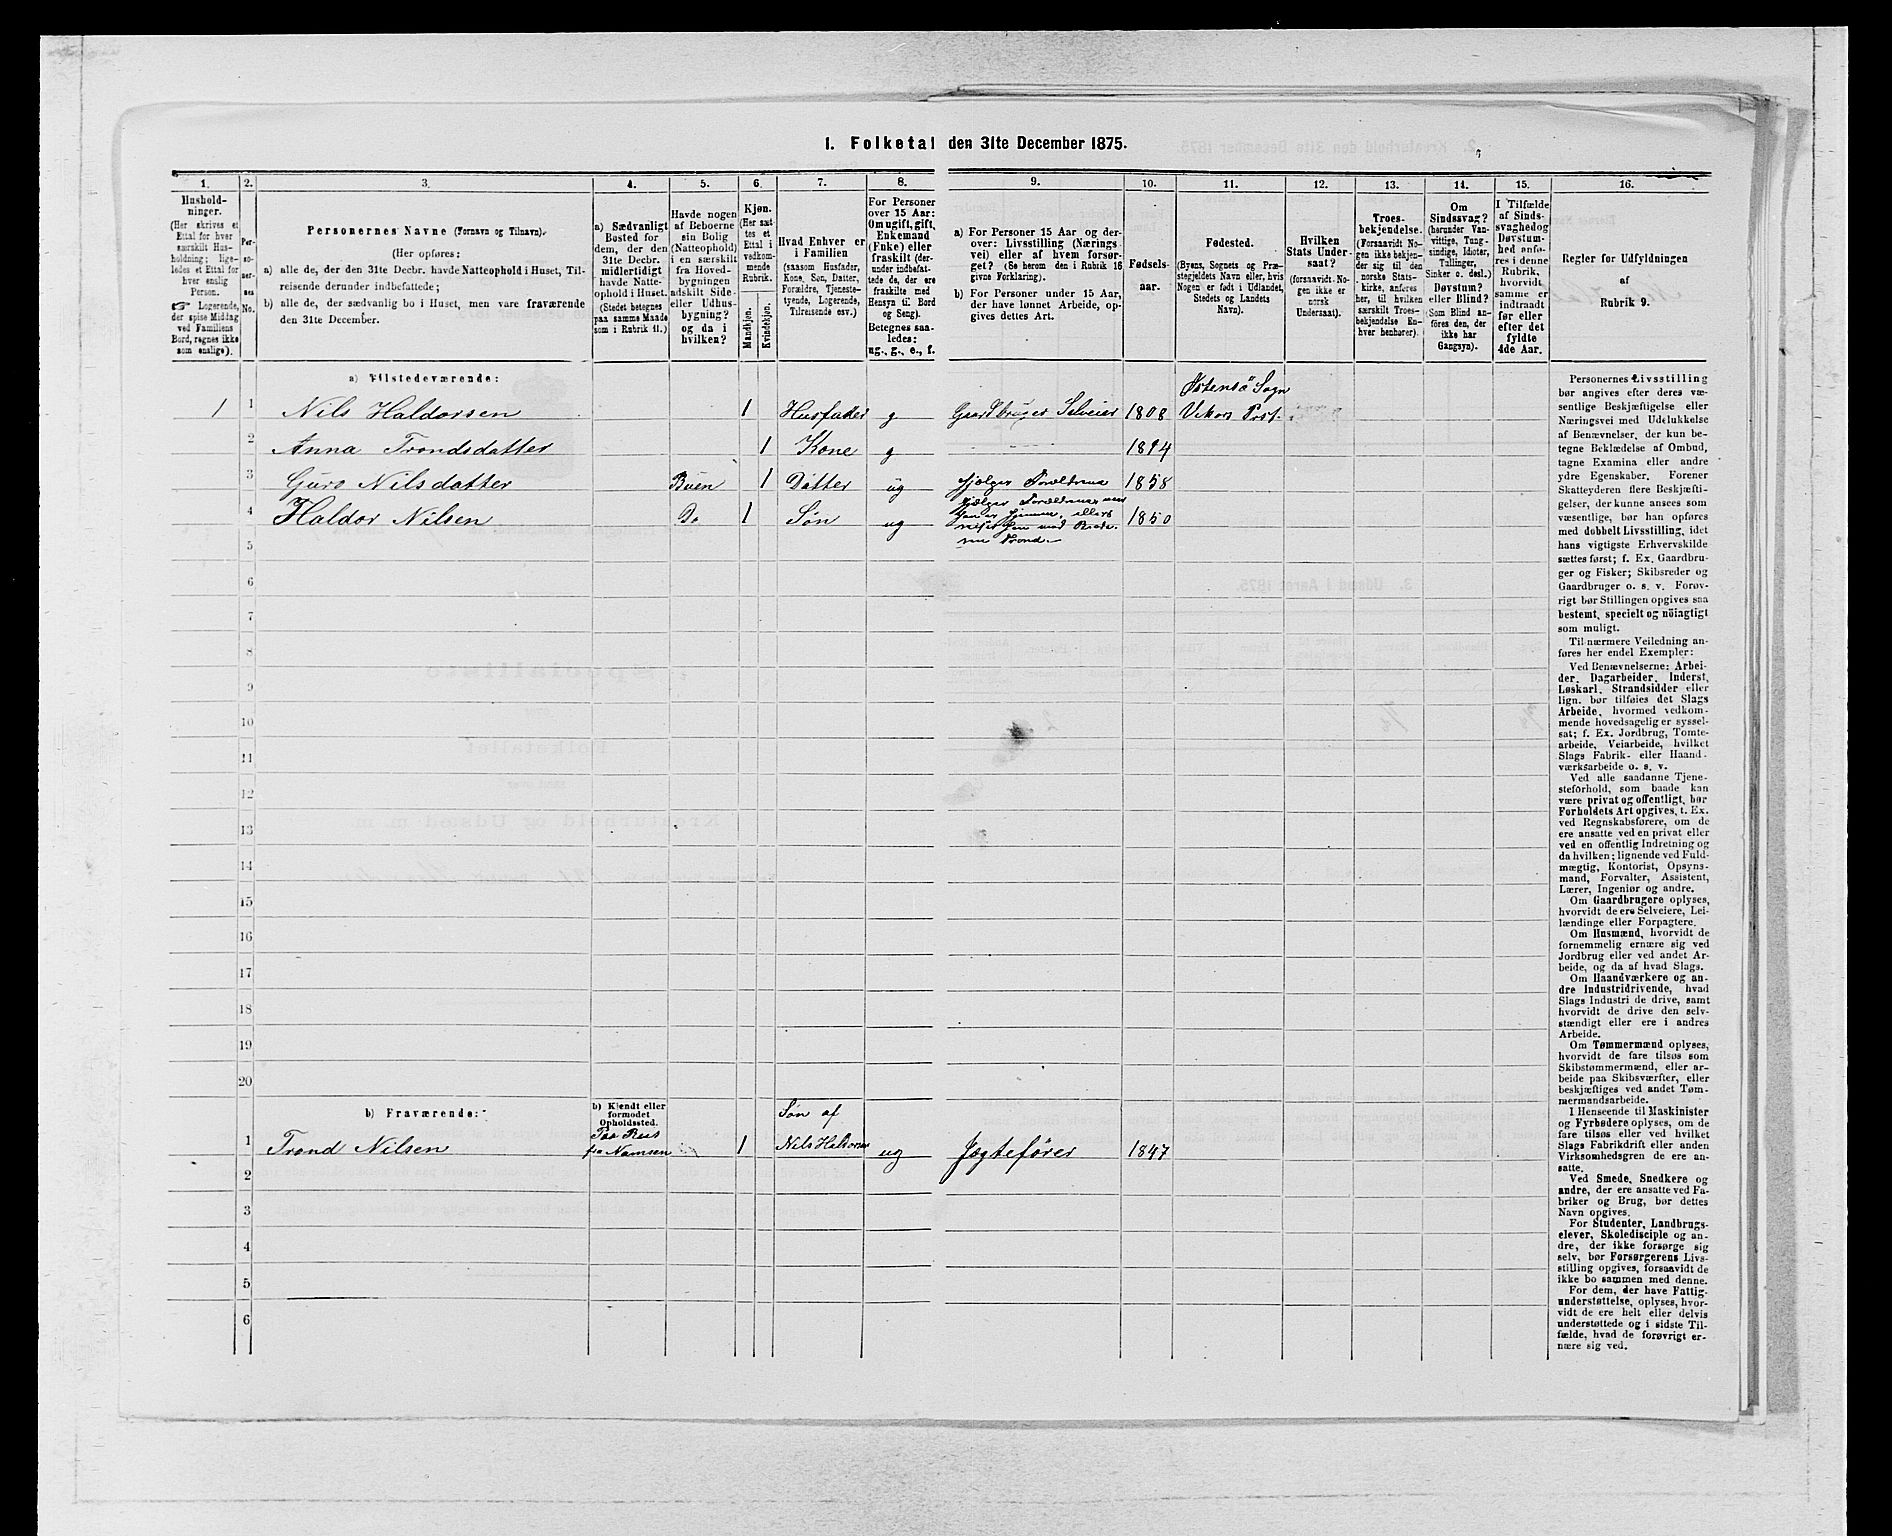 1. Folketal den 31te December 1875.
1. 2. 3. 4. 5. 6. 7. 8. 9. 10. 11. 12. 13. 14. 15. 16.
Hushold-
ninger.
(Her skrives et
Ettal for hver
særskilt Hus-
holdning; lige-
ledes et Ettal for
hver enslig
Person.
☞ Logerende,
der spise Middag
ved Familiens
Bord, regnes ikke
som enslige).
Per-
so-
ner-
nes
No.
Personernes Navne (Fornavn og Tilnavn).
(Her opføres:
a) alle de, der den 31te Decbr. havde Natteophold i Huset, Til-
reisende derunder indbefattede;
b) alle de, der sædvanlig bo i Huset, men vare fraværende
den 31te December.
a) Sædvanligt
Bosted for
dem, der den
31te Decbr.
midlertidigt
havde Natte-
ophold i Huset.
(Stedet betegnes
paa samme Maade
som i Rubrik 11.)
Havde nogen
af Beboerne
sin Bolig
(Natteophold)
i en særskilt
fra Hoved-
bygningen
adskilt Side-
eller Udhus-
bygning?
og da i
hvilken?
Kjøn.
(Her sæt-
tes et
Ettal i
vedkom-
mende
Rubrik.
Mandkjøn.
Kvindekjøn.
Hvad Enhver er
i Familien
(saasom Husfader,
Kone, Søn, Datter,
Forældre, Tjeneste-
tyende, Logerende,
Tilreisende osv.)
For Personer
over 15 Aar:
Om ugift, gift,
Enkemand
(Enke) eller
fraskilt (der-
under indbefat-
tede de, der ere
fraskilte med
Hensyn til Bord
og Seng).
Betegnes saa-
ledes:
ug., g., e., f.
a) For Personer 15 Aar og der-
over: Livsstilling (Nærings-
vei) eller af hvem forsør-
get? (Se herom den i Rubrik 16
givne Forklaring).
b) For Personer under 15 Aar,
der have lønnet Arbeide, op-
gives dettes Art.
Fødsels-
aar.
Fødested.
(Byens, Sognets og Præ-
stegjeldets Navn eller, hvis
Nogen er født i Udlandet,
Stedets og Landets
Navn).
Hvilken
Stats Under-
saat?
(forsaavidt No-
gen ikke er
norsk
Undersaat).
Troes-
bekjendelse.
(Forsaavidt No-
gen ikke bekjen-
der sig til den
norske Stats-
kirke, anføres
her, til hvilken
særskilt Troes-
bekjendelse En-
hver henhører).
Om
Sindssvag?
(herunder Van-
vittige, Tung-
sindige, Idioter,
Tullinger,
Sinker o. desl.)
Døvstum?
eller Blind?
(Som Blind an-
føres den, der
ikke har
Gangsyn).
I Tilfælde
af Sinds-
svaghed og
Døvstum-
hed anfø-
res i denne
Rubrik,
hvorvidt
samme er
indtraadt
før eller
efter det
fyldte
4de Aar.
Regler for Udfyldningen
af
Rubrik 9.
a) Tilstedeværende:
Østensö Sogn
1 1 Nils Haldorsen 1 Husfader g Gaardbruger Selveier 1808 Vikørs Prst.
2 Anna Trondsdatter 1 Kone g 1814
3 Guro Nilsdatter Buen 1 Datter ug Hjælper Forældrene 1858
4 Haldor Nilsen Do 1 Søn ug Hjælper Forældrene naar
han er hjemme, ellers
reiser han med Brode-
ren Trond. 1850
5
6
7
8
9
10
11
12
13
14
15
16
17
18
19
20
b) Fraværende:
b) Kjendt eller
formodet
Opholdssted.
1 Trond Nilsen Paa Reis
fra Namsen 1 Søn af
Nils Haldorsen ug Jægtefører 1847
2
3
4
5
6
Personernes Livsstilling
bør angives efter deres væ-
sentlige Beskjæftigelse eller
Næringsvei med Udelukkelse
af Benævnelser, der kun be-
tegne Beklædelse af Ombud,
tagne Examina eller andre
ydre Egenskaber. Forener
Skatteyderen flere Beskjæfti-
gelser, der kunne ansees som
væsentlige, bør han opføres
med dobbelt Livsstilling, idet
hans vigtigste Erhvervskilde
sættes først; f. Ex. Gaardbru-
ger og Fisker; Skibsreder og
Gaardbruger o. s. v. Forøv-
rigt bør Stillingen opgives saa
bestemt, specielt og nöiagtigt
som muligt.
Til nærmere Veiledning an-
føres her endel Exempler:
Ved Benævnelserne: Arbei-
der, Dagarbeider, Inderst,
Løskarl, Strandsidder eller
lign. bør tilføies det Slags
Arbeide, hvormed vedkom-
mende hovedsagelig er syssel-
sat; f. Ex. Jordbrug, Tomte-
arbeide, Veiarbeide, hvilket
Slags Fabrik- eller Haand-
værksarbeide o. s. v.
Ved alle saadanne Tjene-
steforhold, som baade kan
være privat og offentligt, bør
Forholdets Art opgives, t. Ex.
ved Regnskabsførere, om de
ere ansatte ved en privat eller
ved en offentlig Indretning og
da hvilken; lignende ved Fuld-
mægtig, Kontorist, Opsyns-
mand, Forvalter, Assistent,
Lærer, Ingeniør og andre.
Om Gaardbrugere oplyses,
hvorvidt de ere Selveiere, Lei-
lændinge eller Forpagtere.
Om Husmænd, hvorvidt de
fornemmelig ernære sig ved
Jordbrug eller ved andet Ar-
beide, og da af hvad Slags.
Om Haandværkere og an-
dre Industridrivende, hvad
Slags Industri de drive, samt
hvorvidt de drive den selv-
stændigt eller ere i andres
Arbeide.
Om Tømmermænd oplyses,
hvorvidt de fare tilsøs som
Skibstømmermænd, eller ar-
beide paa Skibsværfter, eller
beskjæftiges ved andet Tøm-
mermandsarbeide.
I Henseende til Maskinister
og Fyrbødere oplyses, om de
fare tilsøs eller ved hvilket
Slags Fabrikdrift eller anden
Virksomhedsgren de ere an-
satte.
Ved Smede, Snedkere og
andre, der ere ansatte ved Fa-
briker og Brug, bør dettes
Navn opgives.
For Studenter, Landbrugs-
elever, Skoledisciple og an-
dre, der ikke forsørge sig
selv, bør Forsørgerens Livs-
stilling opgives, forsaavidt de
ikke bo sammen med denne.
For dem, der have Fattig-
understøttelse, oplyses, hvor-
vidt de ere helt eller delvis
understøttede og i sidste Til-
fælde, hvad de forøvrigt er-
nære sig ved.